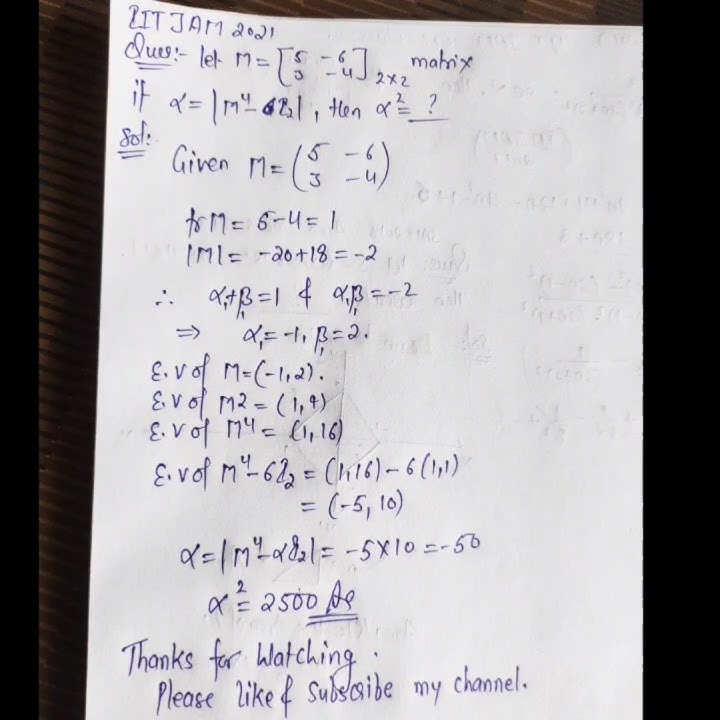 IIT JAM 2021
Ques:- let M = [5 -6
3 -4] 2×2 matrix
if α = |M⁴ - 6I₂|, then α² = ?
Sol:
Given M = (5 -6
3 -4)
tr M = 5-4 = 1
|M| = -20+18 = -2
∴ α₁+β₁ = 1 & α₁β₁ = -2
⇒ α₁ = -1, β₁ = 2.
E.v of M = (-1, 2).
E.v of M2 = (1, 4)
E.v of M⁴ = (1, 16)
E.v of M⁴ - 6I₂ = (1, 16) - 6(1, 1)
= (-5, 10)
α = |M⁴ - αI₂| = -5×10 = -50
α² = 2500 As
Thanks for Watching.
Please like & Subscribe my channel.